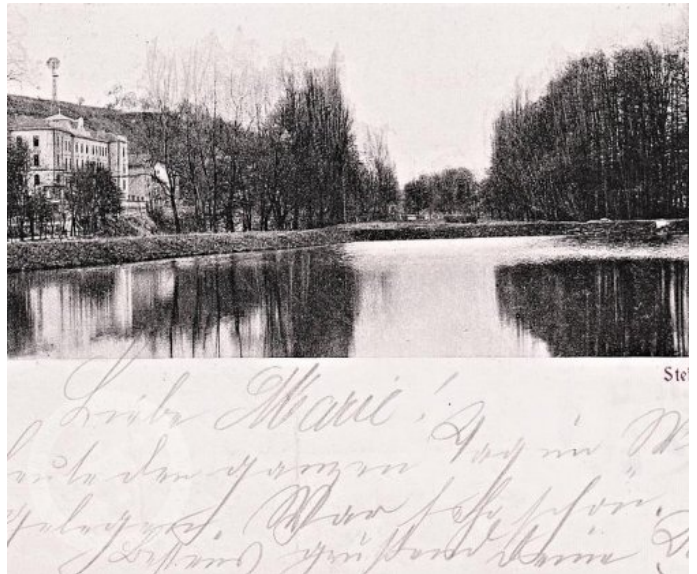 Ste
Liebe Marie!
heute den ganzen Tag im W
gelegen. War sehr schön.
Bestens grüßend Deine